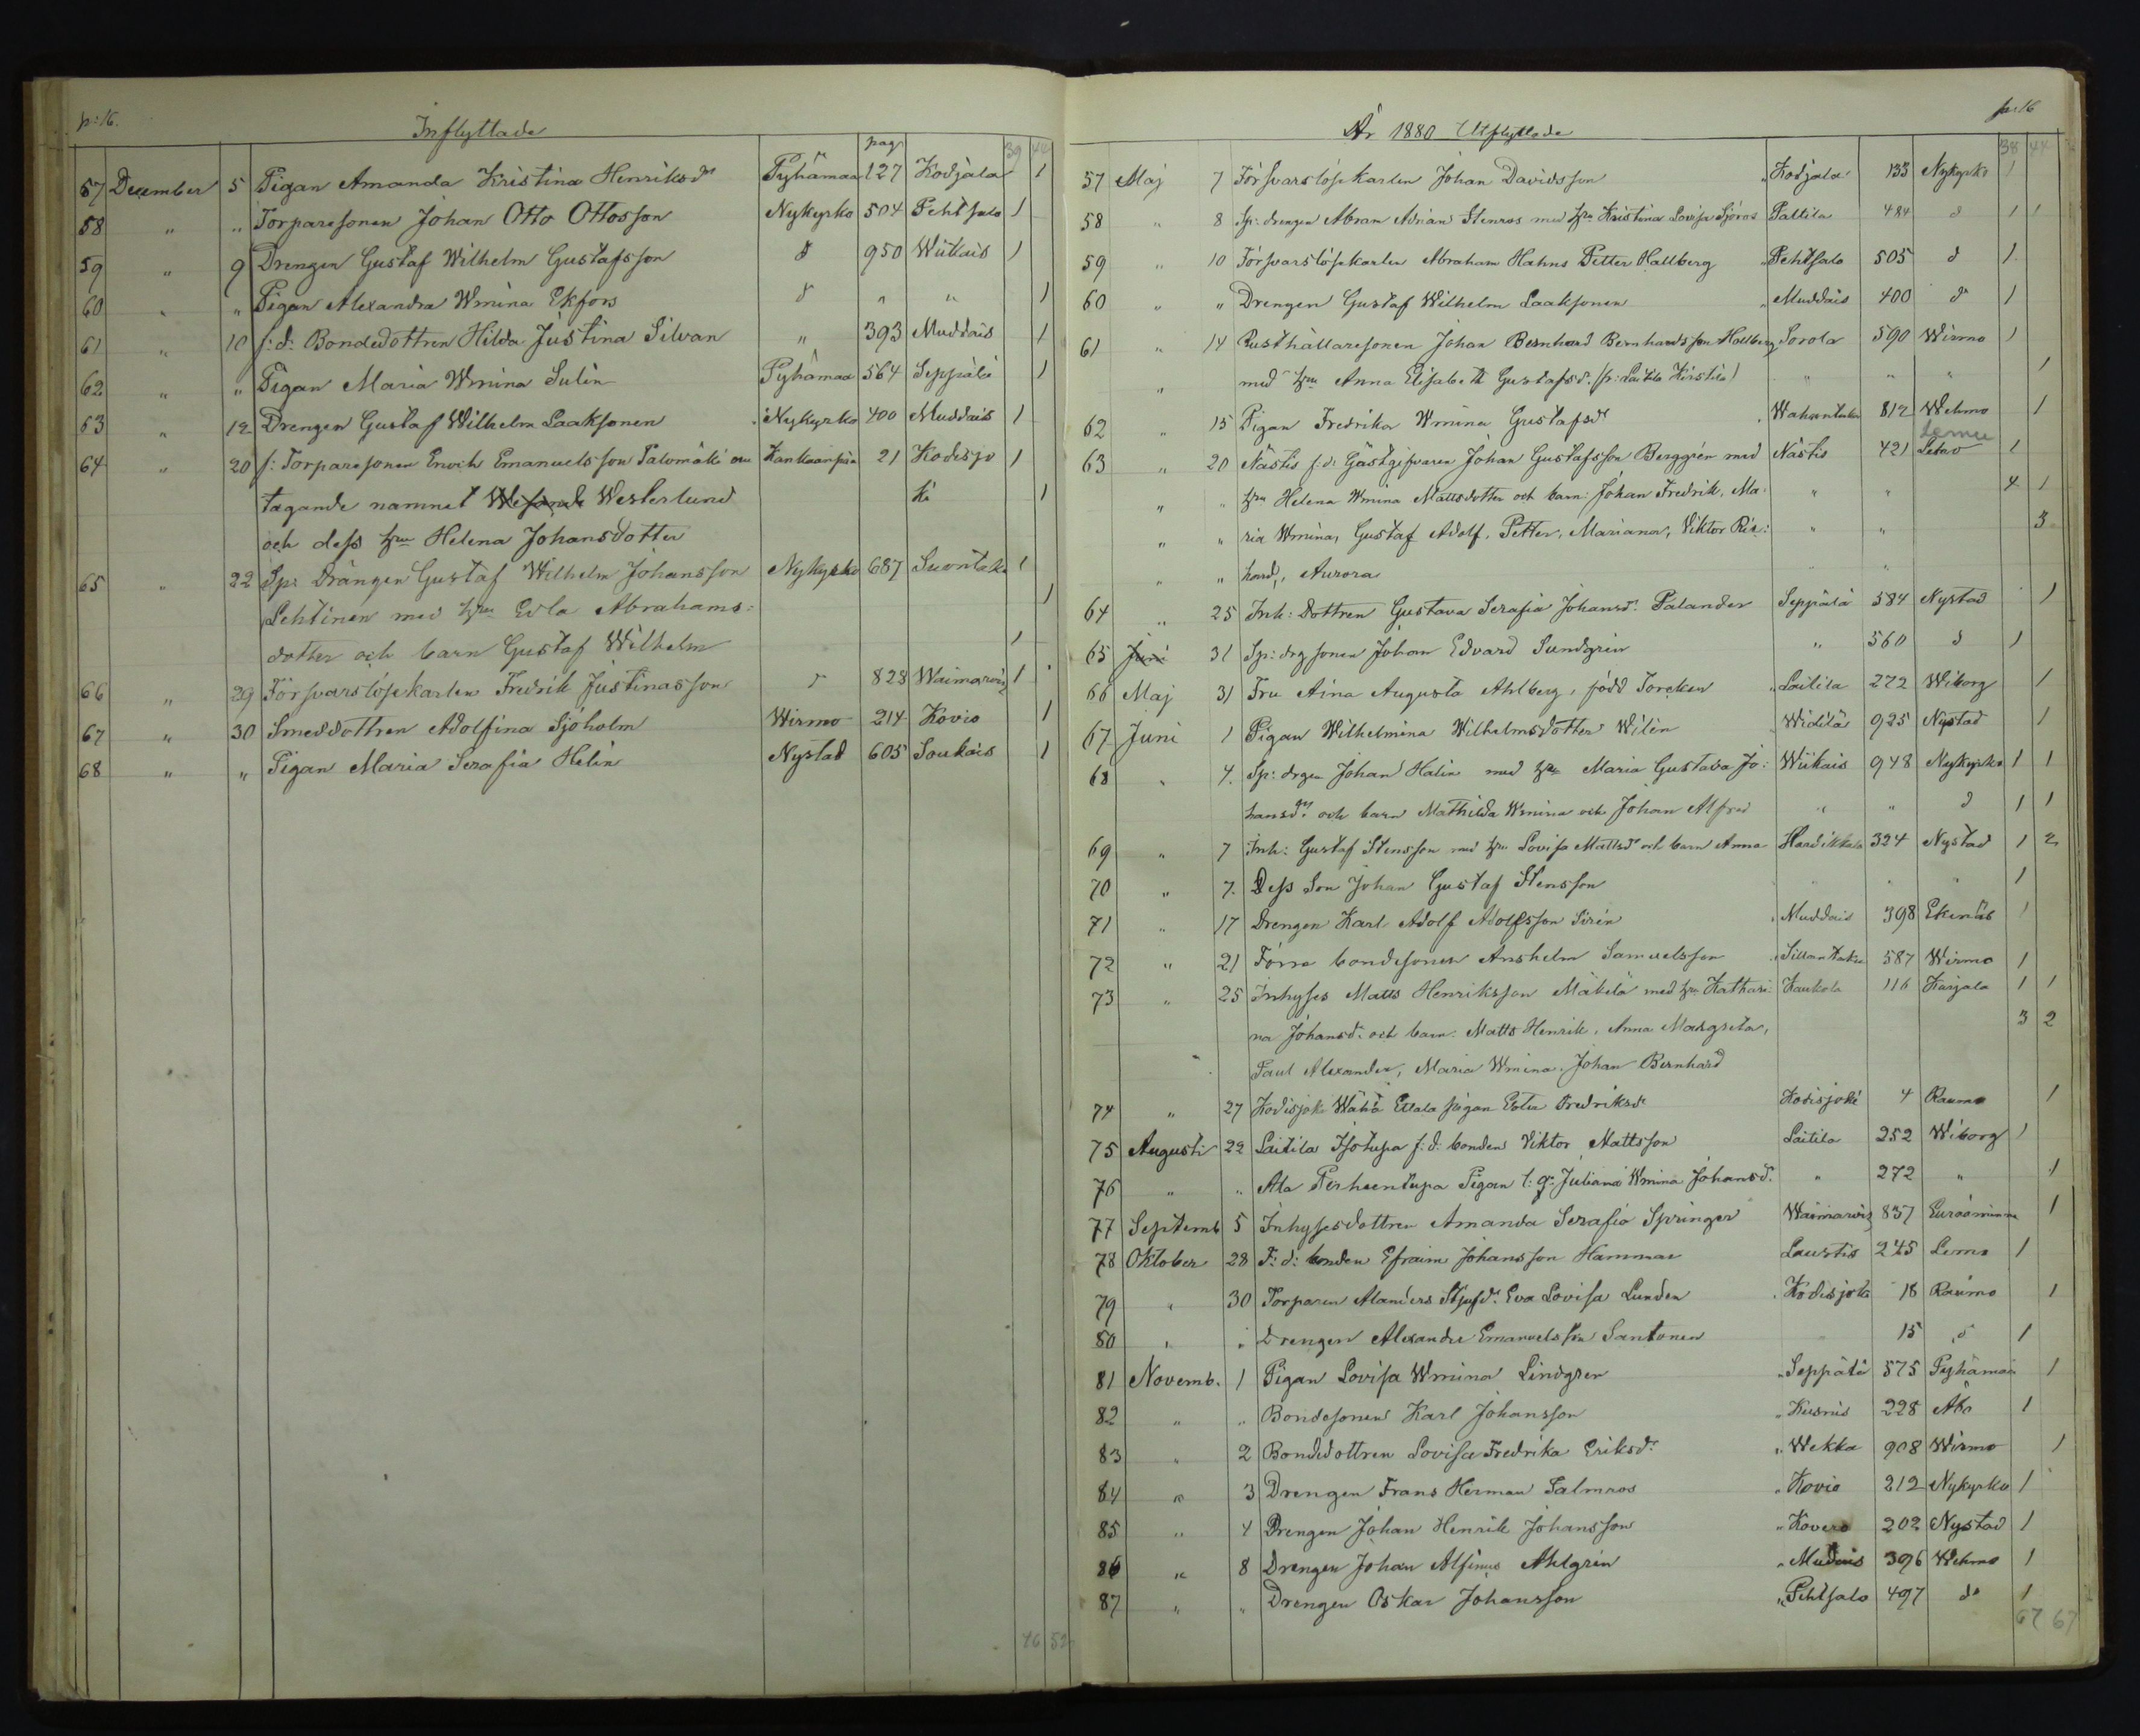 p: 16.
Inflyttade
pag. 39 42
57 December 5 Pigan Amanda Kristina Henriksdr Pyhämaa 127 Kodjala 1
58 " " Torparesonen Johan Otto Ottosson Nykyrko 504 Pehtsalo 1
59 " 9 Drengen Gustaf Wilhelm Gustafsson d 950 Wiikais 1
60 " " Pigan Alexandra Wmina Ekfors d " " 1
61 " 10 f: d: Bondedottren Hilda Justina Silvan " 393 Muddais 1
62 " " Pigan Maria Wmina Sulin Pyhämaa 564 Seppälä 1
63 " 12 Drengen Gustaf Wilhelm Laaksonen Nykyrko 400 Muddais 1
64 " 20 f: Torparesonen Enoch Emanuelsson Palomäki an Kankaanpää 21 Kodisjo 1
tagande namnet Westerlund ki 1
och dess hu Helena Johansdotter
65 " 22 Sp: Drängen Gustaf Wilhelm Johansson Nykyrko 687 Suontaka 1
Lehtinen med hu Evla Abrahams: 1
dotter och barn Gustaf Wilhelm 1
66 " 29 Försvarslösekarlen Fredrik Justinasson d 828 Waimaro 1
67 " 30 Smeddottren Adolfina Sjöholm Wirmo 214 Kovio 1
68 " " Pigan Maria Serafia Helin Nystad 605 Soukais 1
46 52
p: 16
År 1880 Utflyttade
38 44
57 Maj 7 Försvarslösekarlen Johan Davidsson Kodjala 133 Nykyrko 1
58 " 8 Sp: drengen Abram Adrian Stenros med hu Kristina Lovisa Sjöros Paltila 484 d 1 1
59 " 10 Försvarslösekarlen Abraham Hahns Petter Hallberg Pehtsalo 505 d 1
60 " " Drengen Gustaf Wilhelm Laaksonen Muddais 400 d 1
61 " 14 Rusthållaresonen Johan Bernhard Bernhardsson Hallberg Sorola 590 Wirmo 1
" med hu Anna Elisabeth Gustafsd. (fr: Laitila Kirstilä) " " " 1
62 " 15 Pigan Fredrika Wmina Gustafsdr Wahantaka 812 Wehmo 1
Lemu
63 " 20 Nästis f: d: Gästgifvaren Johan Gustafsson Berggrén med Nästis 421 Letav 1
" " hu Helena Wmina Mattsdotter och barn: Johan Fredrik, Ma: " " 4 1
" " ria Wmina, Gustaf Adolf, Petter, Mariana, Viktor Rik: " " 3
" " hard, Aurora " "
64 " 25 Inh: Dottren Gustava Serafia Johansd: Palander Seppälä 584 Nystad 1
65 Juni 31 Sp: drg sonen Johan Edvard Sundgrén " 560 d 1
66 Maj 31 Fru Aina Augusta Ahlberg, född Torcken Laitila 272 Wiborg 1
67 Juni 1 Pigan Wilhelmina Wilhelmsdotter Wilén Widilä 925 Nystad 1
68 " 4. Sp: drgen Johan Halin med hu Maria Gustava Jo: Wiikais 948 Nykyrko 1 1
hansdr och barn Mathilda Wmina och Johan Alfred " " d 1 1
69 " 7 Inh: Gustaf Stensson med hu Lovisa Mattsdr och barn Anna Haudikkala 324 Nystad 1 2
70 " 7. Dess Son Johan Gustaf Stensson " " " 1
71 " 17 Drengen Karl Adolf Adolfsson Sirén Muddais 398 Ekenäs 1
72 " 21 Förra bondesonen Anshelm Samuelsson Sillantaka 587 Wirmo 1
73 " 25 Inhyses Matts Henriksson Mäkilä med hu Kathari: Kaukola 116 Karjala 1 1
na Johansd. och barn. Matts Henrik, Anna Margreta, 3 2
" Paul Alexander, Maria Wmina, Johan Bernhard
74 " 27 Kodisjoki Wähä Ettala pigan Ester Fredriksdr Kodisjoki 4 Raumo 1
75 Augusti 22 Laitila Isotupa f: d: bonden Viktor Mattsson Laitila 252 Wiborg 1
76 " " Ala Perheentupa Pigan l: g: Juliana Wmina Johansd. " 272 " 1
77 Septemb 5 Inhysesdottren Amanda Serafia Springer Waimaro 837 Euraåminne 1
78 Oktober 28 F: d: bonden Efraim Johansson Hammar Laustis 245 Lemo 1
79 " 30 Torparen Alanders Styfd. Eva Lovisa Lunden Kodisjoki 18 Raumo 1
80 " " Drengen Alexander Emanuelsson Santonen 15 d 1
81 Novemb. 1 Pigan Lovisa Wmina Lindgren Seppälä 575 Pyhämaa 1
82 " " Bondesonen Karl Johansson Kusnis 228 Åbo 1
83 " 2 Bondedottren Lovisa Fredrika Eriksdr " Wekka 908 Wirmo 1
84 " 3 Drengen Frans Herman Salmros " Kovio 212 Nykyrko 1
85 " 4 Drengen Johan Henrik Johansson " Kovero 202 Nystad 1
86 " 8 Drengen Johan Alfinus Ahlgrén " Mudais 396 Wehmo 1
87 " " Drengen Oskar Johansson " Pehtsalo 497 do 1
67 67